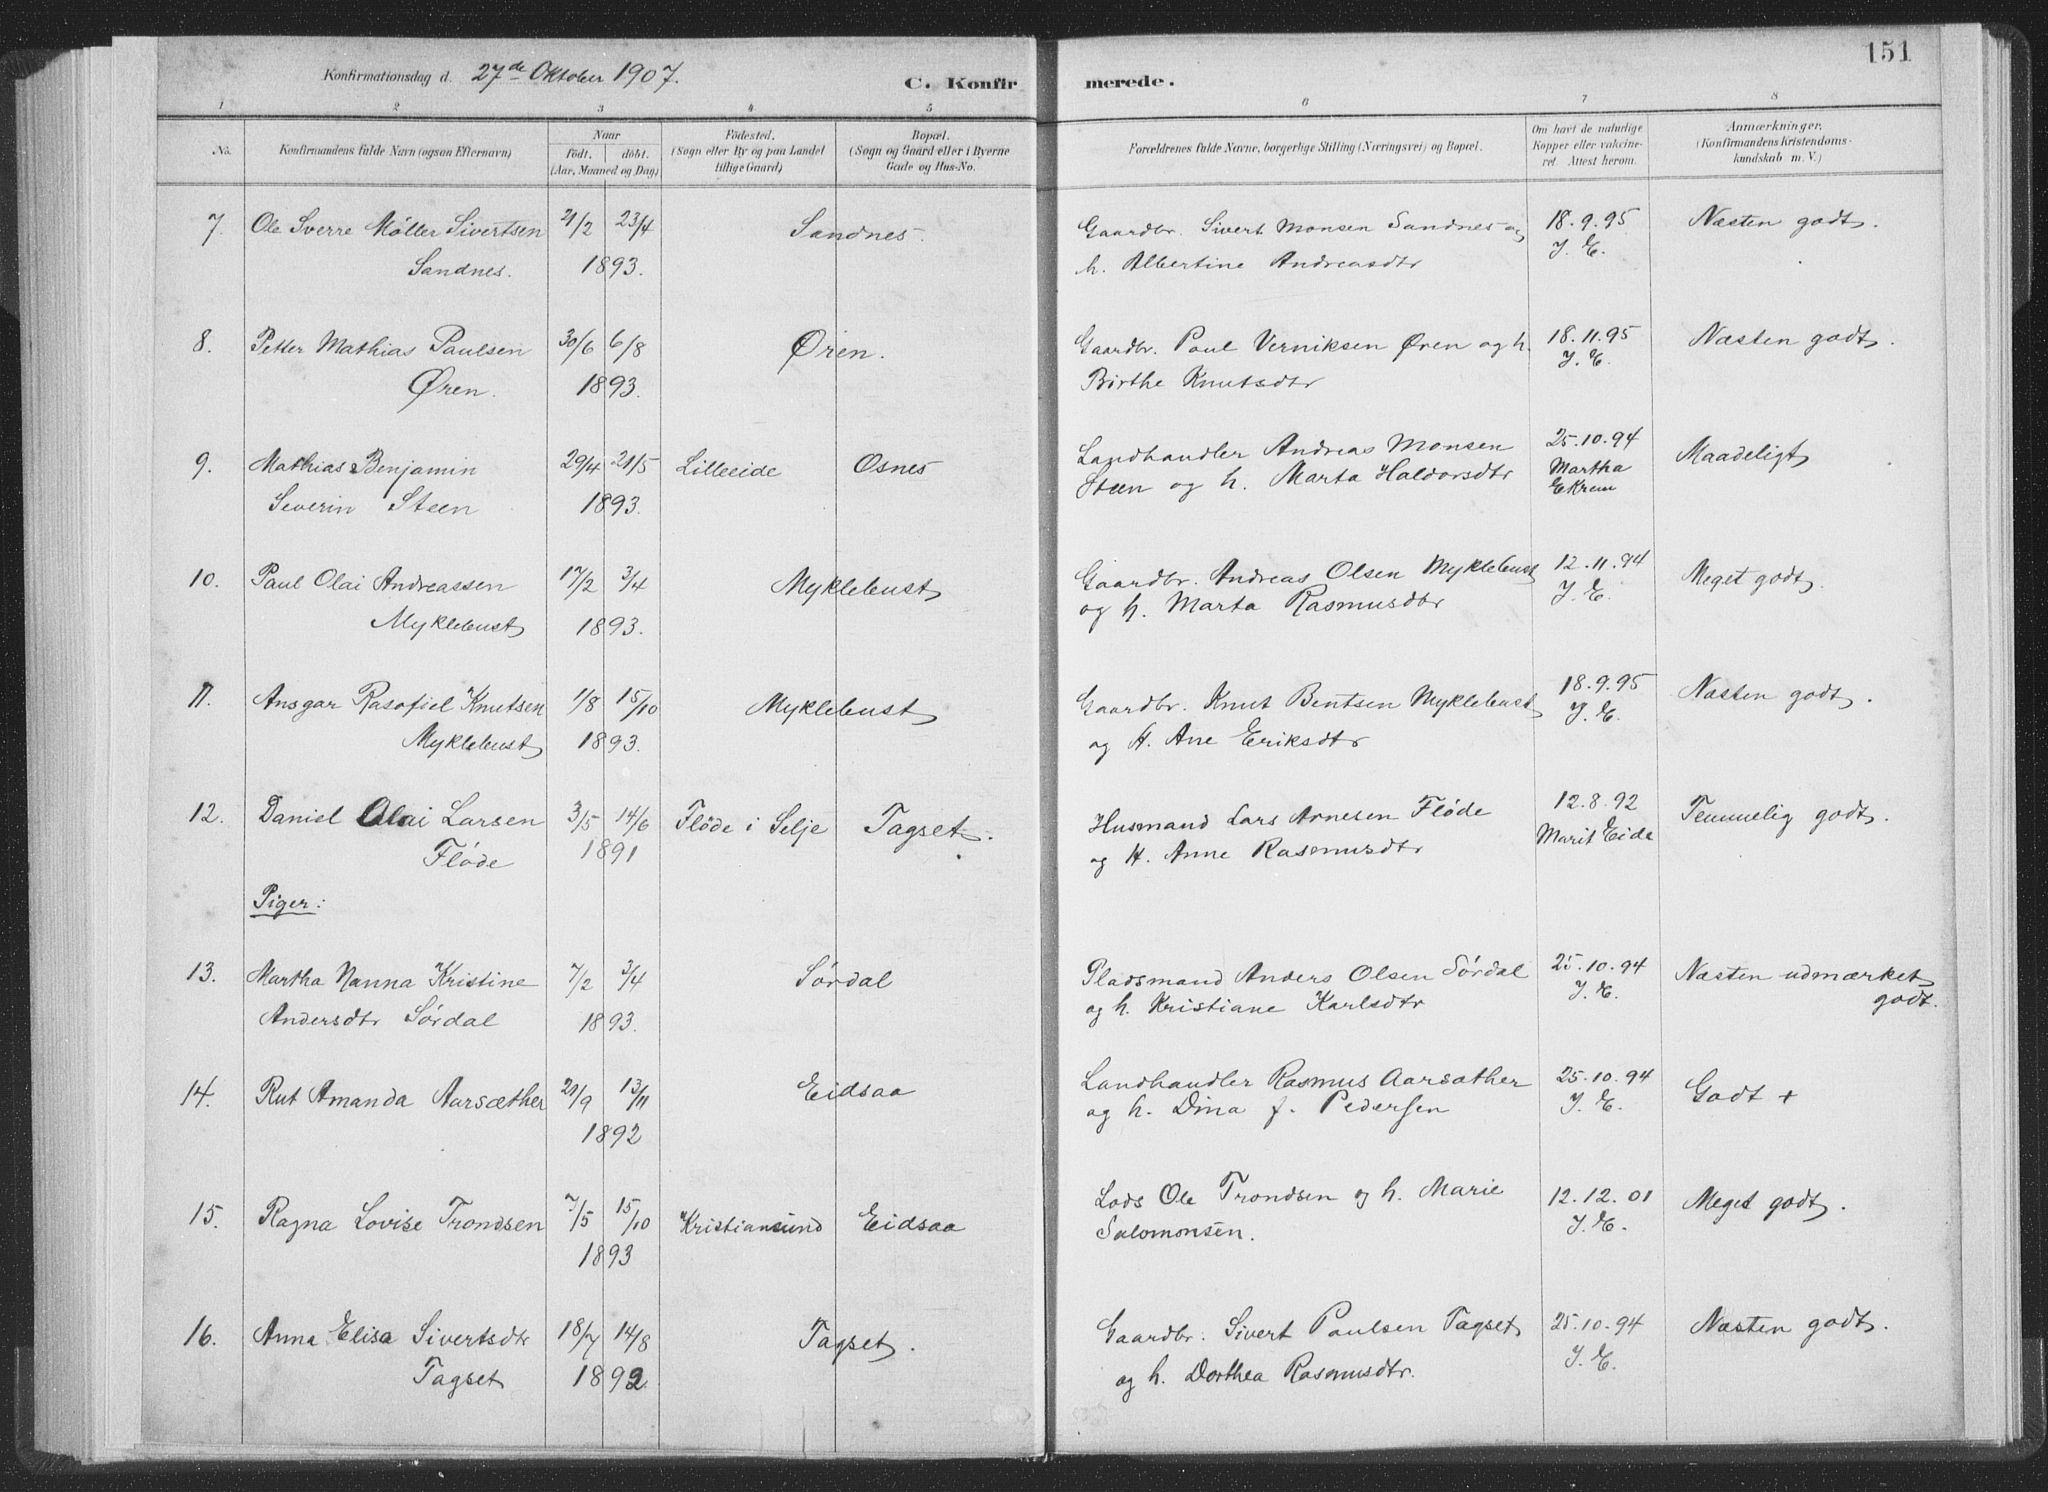 151
Konfirmationsdag d. 27de Oktober 1907.
C. Konfirmerede.
1 2 3 4 5 6 7 8
No. Konfirmandens fulde Navn (ogsaa Efternavn) Naar født, døbt. (Aar, Maaned og Dag) Fødested. (Sogn eller By og paa Landet tillige Gaard) Bopæl. (Sogn og Gaard eller i Byerne Gade og Hus-No. Forældrenes fulde Navne, borgerlige Stilling (Næringsvei) og Bopæl. Om havt de naturlige Kopper eller vakcineret. Attest herom. Anmærkninger. (Konfirmandens Kristendomskundskab m. V.)
7. Ole Sverre Möller Sivertsen 21/2 23/4 Sandnes. Gaardbr. Sivert Monsen Sandnes og 18.9.95 Næsten godt.
Sandnes. 1893. h. Albertine Andreasdtr J. E.
8. Petter Mathias Paulsen 30/6 6/8 Øren. Gaardbr. Paul Verniksen Øren og h. 18.11.95 Næsten godt.
Øren. 1893. Birthe Knutsdtr J. E.
9. Mathias Benjamin 29/4 21/5 Lilleeide Osnes Landhandler Andreas Monsen 25.10.94 Maadeligt
Severin Steen 1893. Steen og h. Marta Haldorsdtr Martha Ekrem
10. Paul Olai Andreassen 17/2 3/4 Myklebust Gaardbr. Andreas Olsen Myklebust 12.11.94 Meget godt.
Myklebust 1893. og h. Marta Rasmusdtr J. E.
11. Ansgar Rasofiel Knutsen 1/8 15/10 Myklebust Gaardbr. Knut Bentsen Myklebust 18.9.95 Næsten godt.
Myklebust 1893. og H. Ane Eriksdtr J. E.
12. Daniel Olai Larsen 3/5 14/6 Flöde i Selje Tagset. Husmand Lars Arnesen Flöde 12.8.92 Temmelig godt.
Flöde 1891 og H. Anne Rasmusdtr Marit Eide
Piger:
13. Martha Nanna Kristine 7/2 3/4 Sördal Pladsmand Anders Olsen Sördal 25.10.94 Næsten udmærket
Andersdtr Sördal 1893. og h. Kristiane Karlsdtr J. E. godt.
14. Rut Amanda Aarsæther 21/9 13/11 Eidsaa Landhandler Rasmus Aarsæther 25.10.94 Godt +
1892 og h. Dina f. Pedersen J. E.
15. Ragna Lovise Trondsen 7/5 15/10 Kristiansund Eidsaa Lods Ole Trondsen og h. Marie 12.12.01 Meget godt.
1893 Salomonsen. J. E.
16. Anna Elisa Sivertsdtr 18/7 14/8 Tagset. Gaardbr. Sivert Paulsen Tagset 25.10.94 Næsten godt.
Tagset 1892. og h. Dorthea Rasmusdtr. J. E.